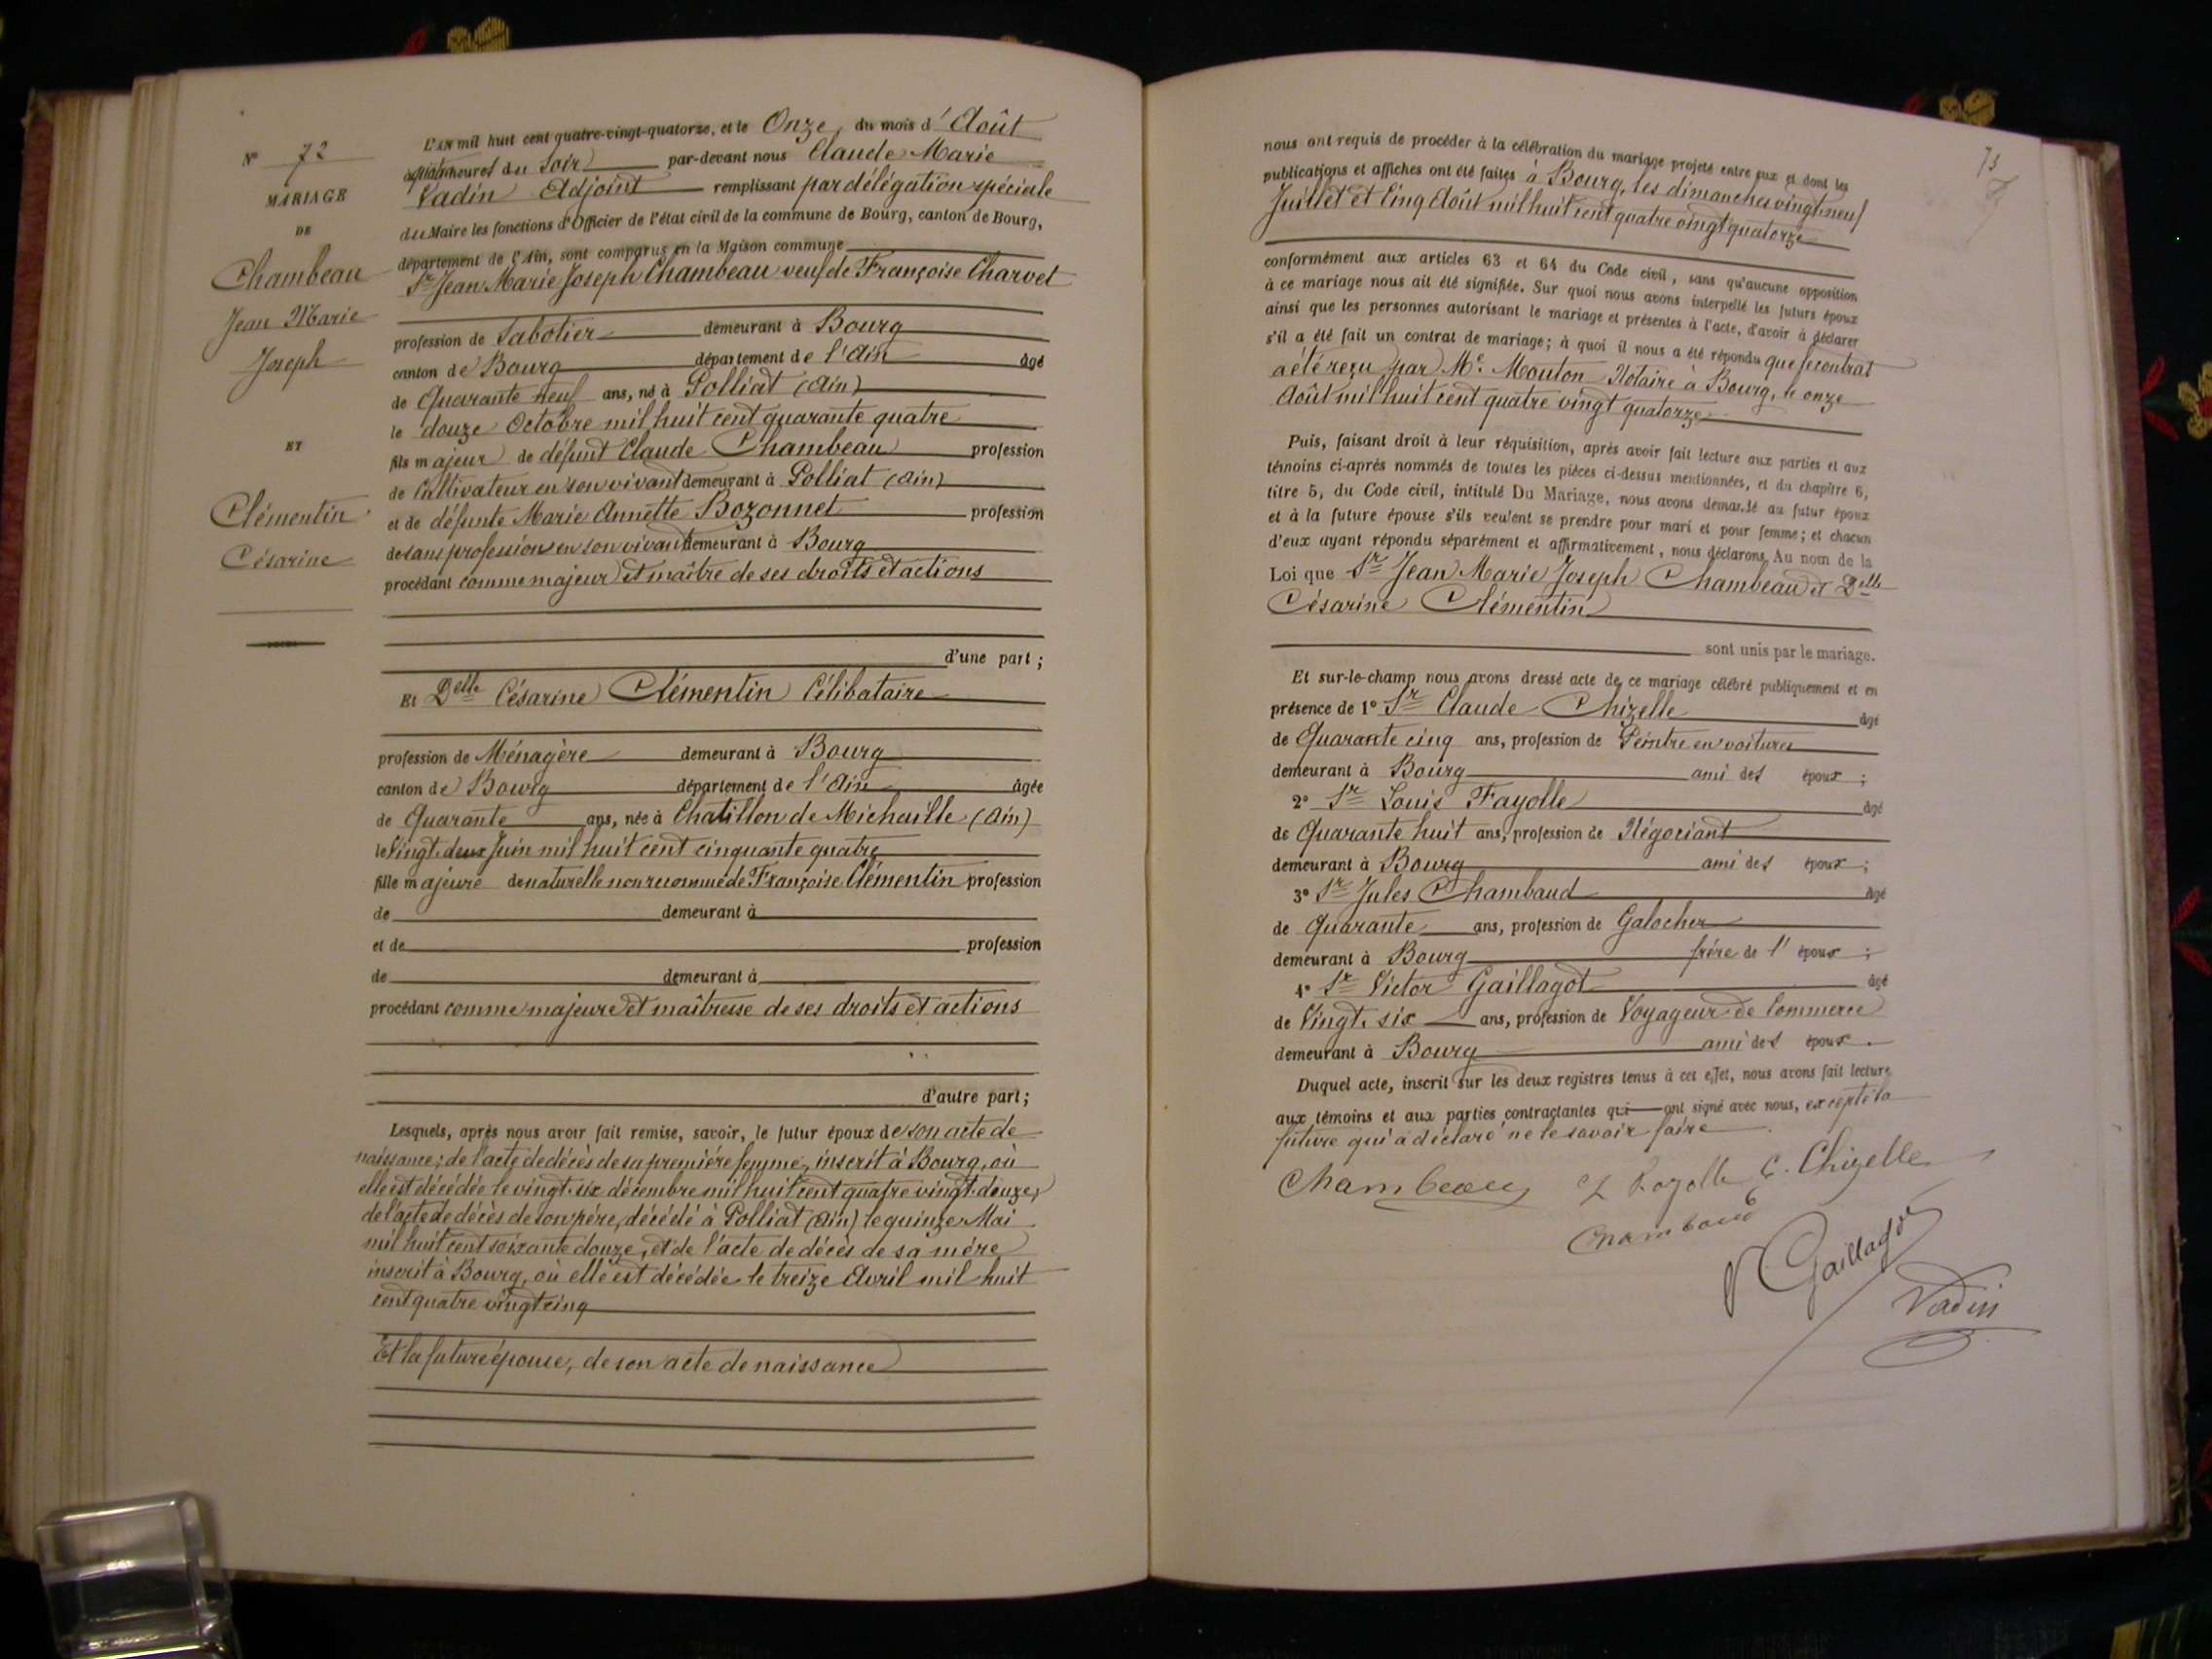 N° 72
MARIAGE
DE
Chambeau
Jean Marie
Joseph
ET
Clémentin
Césarine
L'AN mil huit cent quatre-vingt-quatorze, et le Onze, du mois d'Août
heures du Soir par-devant nous Claude Marie
Vadin Adjoint remplissant par délégation spéciale
du Maire les fonctions d'Officier de l'état civil de la commune de Bourg, canton de Bourg,
département de l'Ain, sont comparus en la Maison commune
Sr Jean Marie Joseph Chambeau veuf de Françoise Charvet
profession de Sabotier demeurant à Bourg
canton de Bourg département de l'Ain âgé
de Quarante neuf ans, né à Polliat (Ain)
le douze Octobre mil huit cent quarante quatre
fils majeur de défunt Claude Chambeau profession
de Cultivateur en son vivant demeurant à Polliat (Ain)
et de défunte Marie Annette Bozonnet profession
de sans profession en son vivant demeurant à Bourg
procédant comme majeur et maître de ses droits et actions
d'une part ;
Et Delle Césarine Clémentin Célibataire
profession de Ménagère demeurant à Bourg
canton de Bourg département de l'Ain âgée
de Quarante ans, née à Chatillon de Michaille (Ain)
le Vingt deux Juin mil huit cent cinquante quatre
fille majeure de naturelle non reconnue de Françoise Clémentin profession
de demeurant à
et de profession
de demeurant à
procédant comme majeure et maîtresse de ses droits et actions
d'autre part ;
Lesquels, après nous avoir fait remise, savoir, le futur époux de son acte de
naissance ; de l'acte de décès de sa première femme, inscrit à Bourg, où
elle est décédée le vingt-six décembre mil huit cent quatre vingt-douze,
de l'acte de décès de son père, décédé à Polliat (Ain) le quinze Mai
mil huit cent soixante douze, et de l'acte de décès de sa mère
inscrit à Bourg, où elle est décédée le treize Avril mil huit
cent quatre vingt cinq
Et la future épouse, de son acte de naissance
73
nous ont requis de procéder à la célébration du mariage projeté entre eux et dont les
publications et affiches ont été faites à Bourg, les dimanches vingt-neuf
Juillet et Cinq Août mil huit cent quatre vingt quatorze
conformément aux articles 63 et 64 du Code civil, sans qu'aucune opposition
à ce mariage nous ait été signifiée. Sur quoi nous avons interpellé les futurs époux
ainsi que les personnes autorisant le mariage et présentes à l'acte, d'avoir à déclarer
s'il a été fait un contrat de mariage ; à quoi il nous a été répondu que le contrat
a été reçu par Me Mouton Notaire à Bourg, le onze
Août mil huit cent quatre vingt quatorze
Puis, faisant droit à leur réquisition, après avoir fait lecture aux parties et aux
témoins ci-après nommés de toutes les pièces ci-dessus mentionnées, et du chapitre 6,
titre 5, du Code civil, intitulé Du Mariage, nous avons demandé au futur époux
et à la future épouse s'ils veulent se prendre pour mari et pour femme ; et chacun
d'eux ayant répondu séparément et affirmativement, nous déclarons, Au nom de la
Loi que Sr Jean Marie Joseph Chambeau et Delle
Césarine Clémentin
sont unis par le mariage.
Et sur-le-champ nous avons dressé acte de ce mariage célébré publiquement et en
présence de 1° Sr Claude Chizelle âgé
de Quarante cinq ans, profession de Peintre en voitures
demeurant à Bourg ami des époux ;
2° Sr Louis Fayolle âgé
de Quarante huit ans, profession de Négociant
demeurant à Bourg ami des époux ;
3° Sr Jules Chambaud âgé
de Quarante ans, profession de Galocher
demeurant à Bourg frère de l'époux ;
4° Sr Victor Gaillagot âgé
de Vingt-six ans, profession de Voyageur de Commerce
demeurant à Bourg ami des époux.
Duquel acte, inscrit sur les deux registres tenus à cet effet, nous avons fait lecture
aux témoins et aux parties contractantes qui ont signé avec nous, excepté la
future qui a déclaré ne le savoir faire
Chambeau L Fayolle C. Chizelle
Chambaud
V Gaillagot
Vadin